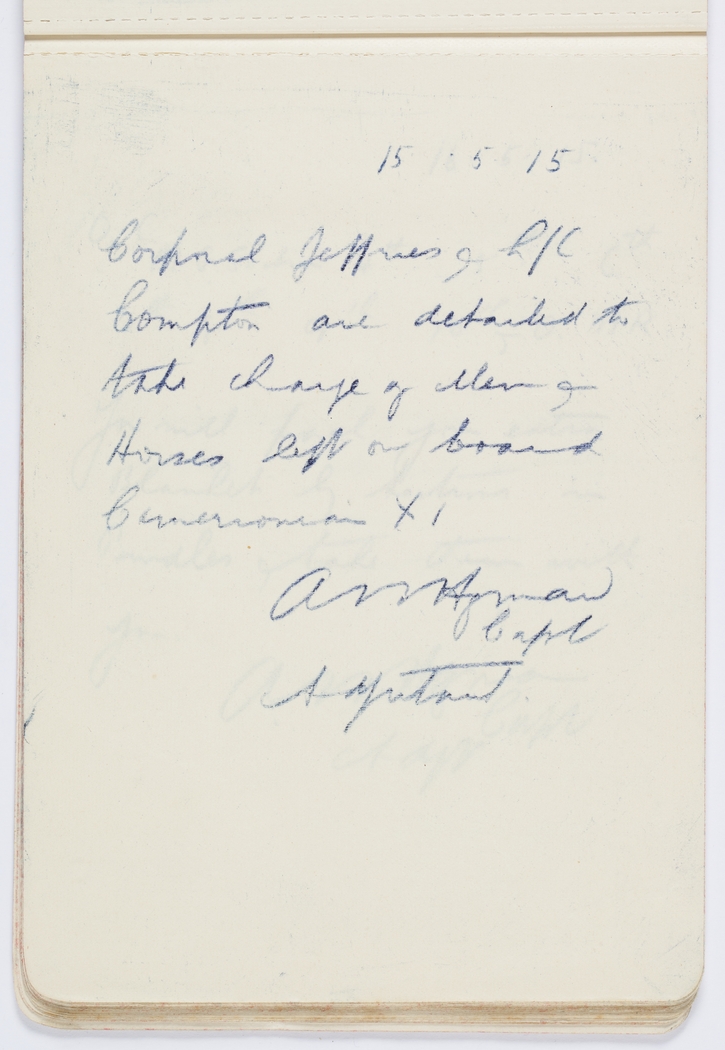 15 . 5 15
Corporal Jeffries & L/C
Compton are detailed to
take charge of Men &
Horses left on board
Camerronian X 1
Hyman
Capt
Adjutant